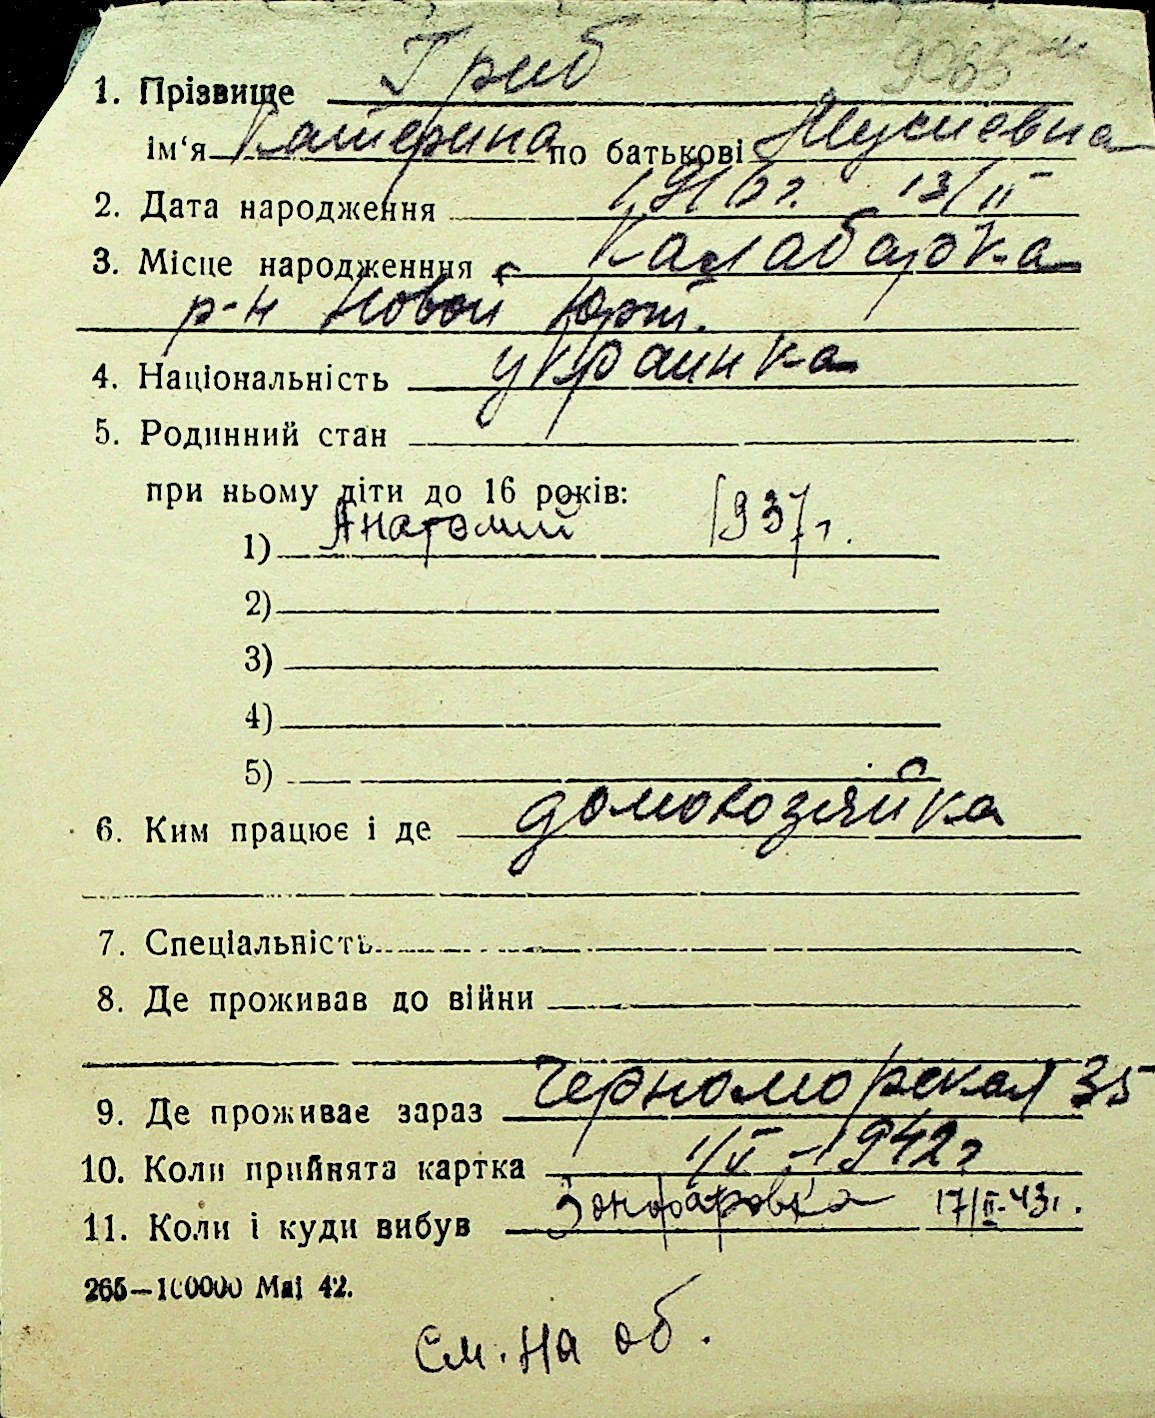 1. Прізвище Гриб
ім'я Катерина по батькові Мусиевна
2. Дата народження 13/II
3. Місце народженння с. Калабарка
р-н Новой
4. Національність украинка
5. Родинний стан
при ньому діти до 16 років:
1) Анатолий 1937 г.
2)
3)
4)
5)
6. Ким працює і де домохозяйка
7. Спеціальність
8. Де проживав до війни
9. Де проживає зараз Черноморская 35
10. Коли прийнята картка 1/V - 1942 г
11. Коли і куди вибув 17/II-43 г.
265—100000 Маі 42.
См. на об.